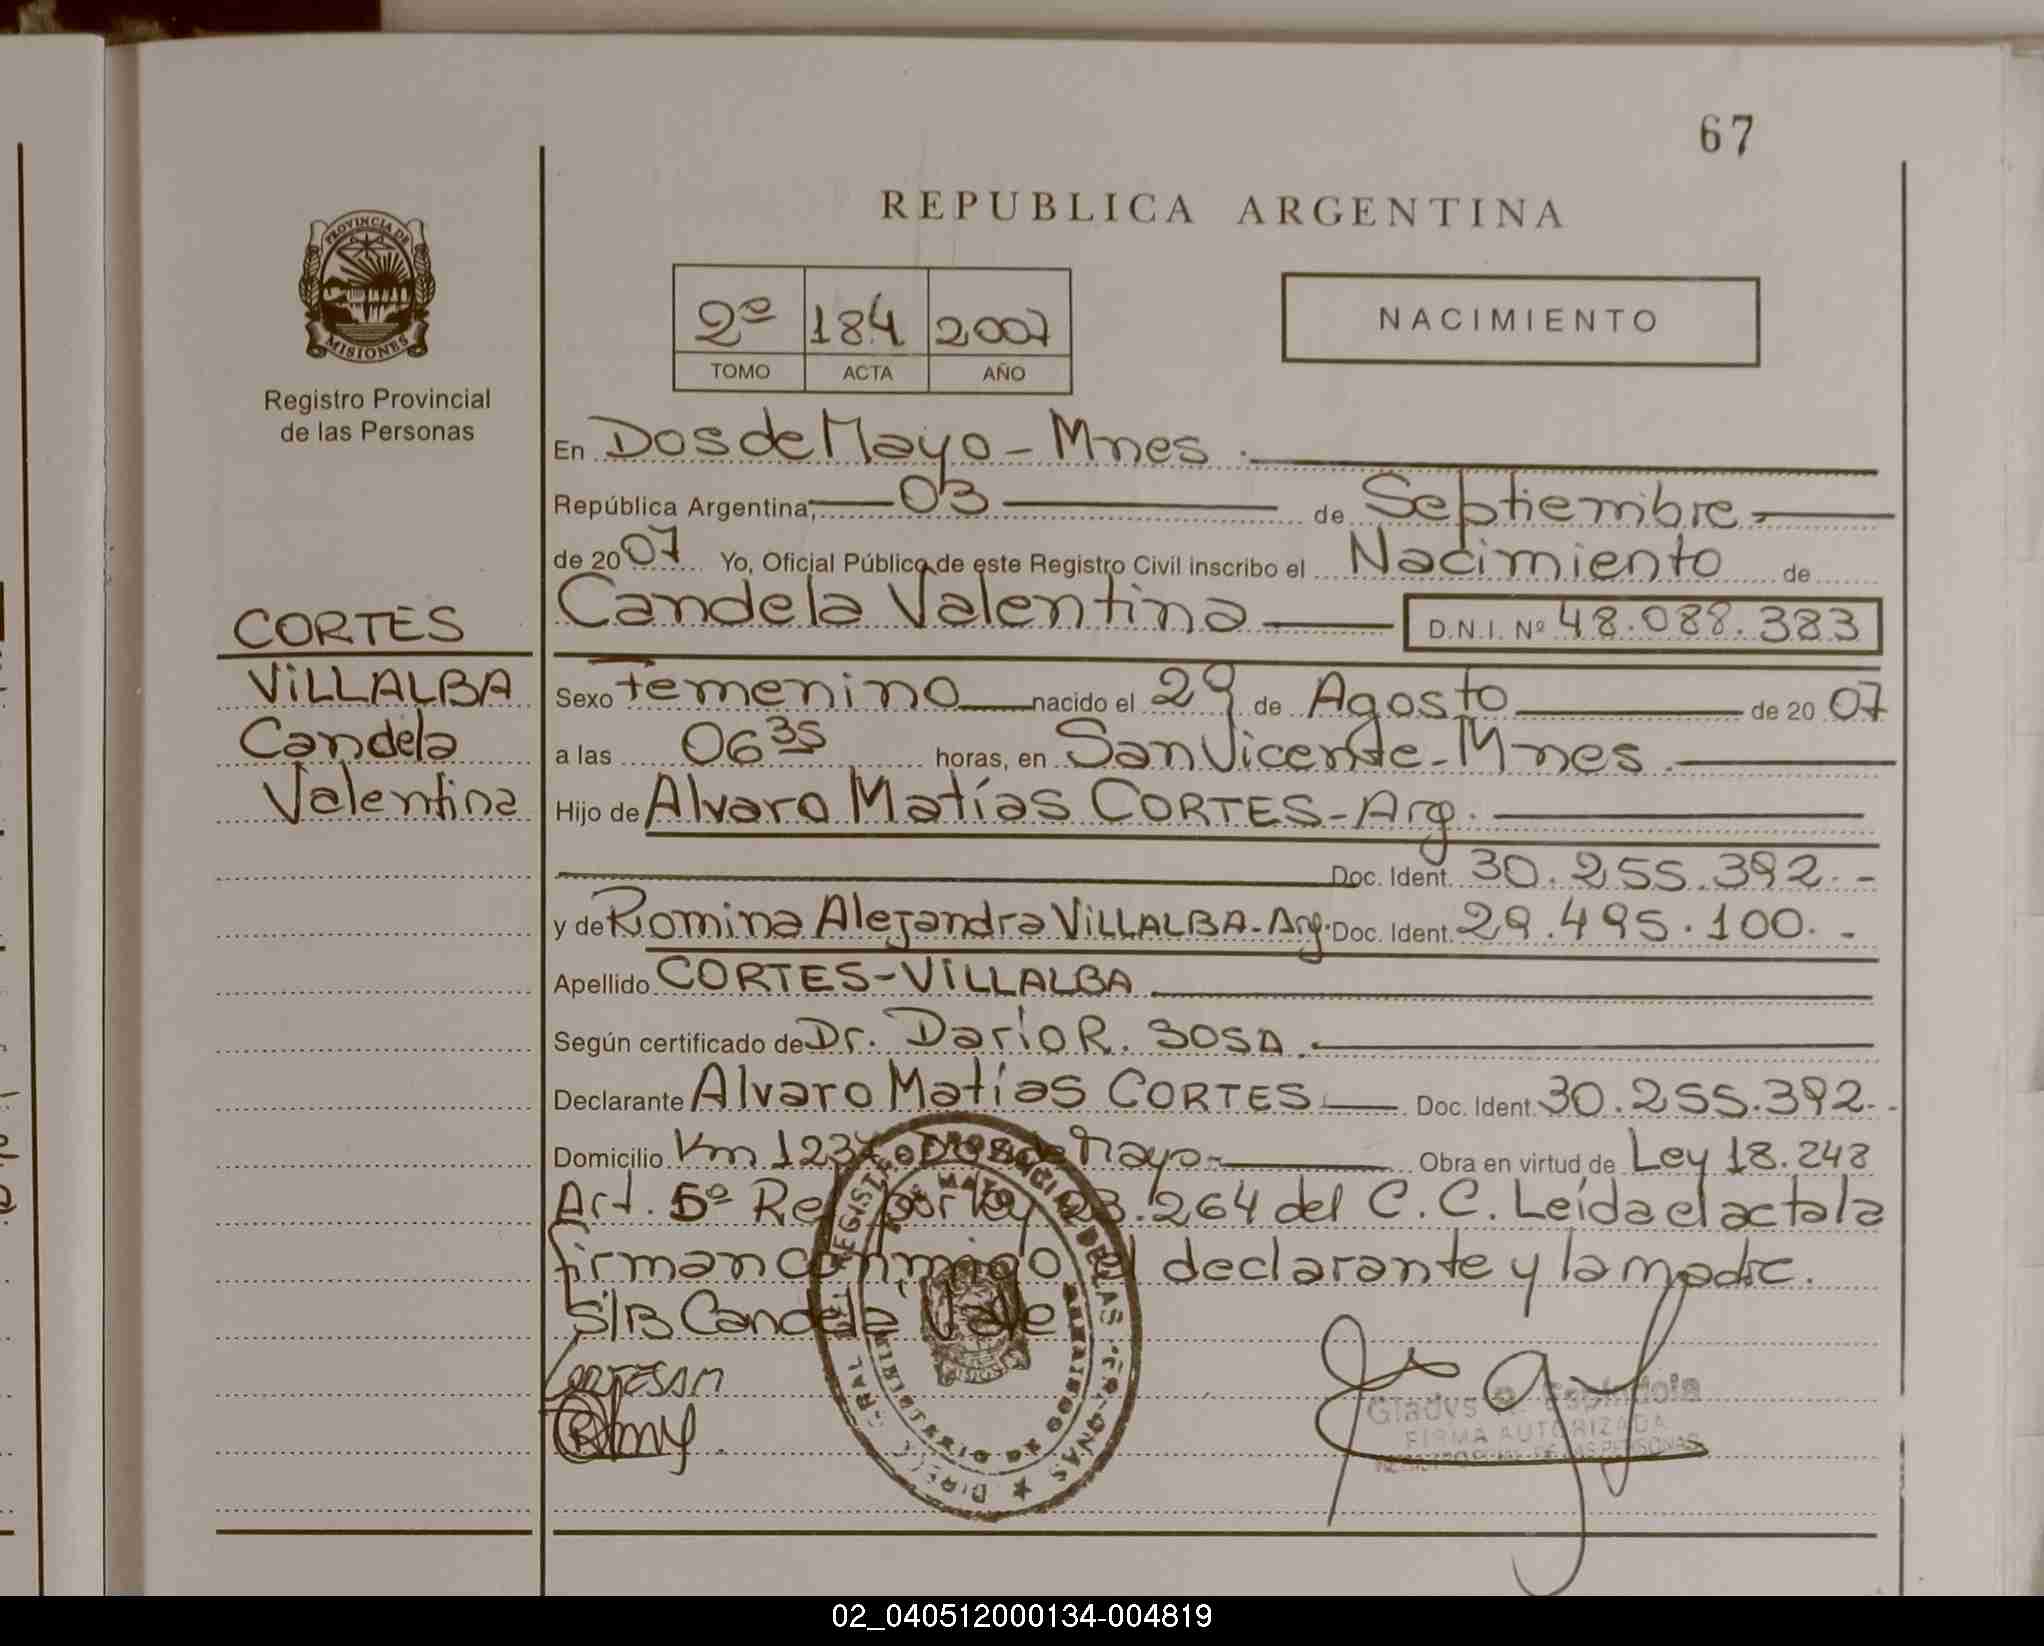 67
REPUBLICA ARGENTINA
PROVINCIA DE
MISIONES
Registro Provincial
de las Personas
2º 184 2007
TOMO ACTA AÑO
NACIMIENTO
En Dos de Mayo - Mnes.
República Argentina, 03 de Septiembre
de 2007 Yo, Oficial Público de este Registro Civil inscribo el Nacimiento de
Candela Valentina D.N.I. Nº 48.088.383
CORTES
VILLALBA
Candela
Valentina
Sexo Femenino nacido el 29 de Agosto de 2007
a las 06 35 horas, en San Vicente - Mnes
Hijo de Alvaro Matías CORTES - Arg.
Doc. Ident. 30.255.392.-
y de Romina Alejandra VILLALBA - Arg. Doc. Ident. 29.495.100.-
Apellido CORTES-VILLALBA
Según certificado de Dr. Darío R. SOSA.
Declarante Alvaro Matías CORTES Doc. Ident. 30.255.392.-
Domicilio Km 1237 Dos de Mayo- Obra en virtud de Ley 18.248
Art. 5º Ref por ley 23.264 del C. C. Leída el acta la
firman conmigo el declarante y la madre.
S/B Candela Vale
CORTES AM
Gladys Espindola
FIRMA AUTORIZADA
DE LAS PERSONAS
02_040512000134-004819